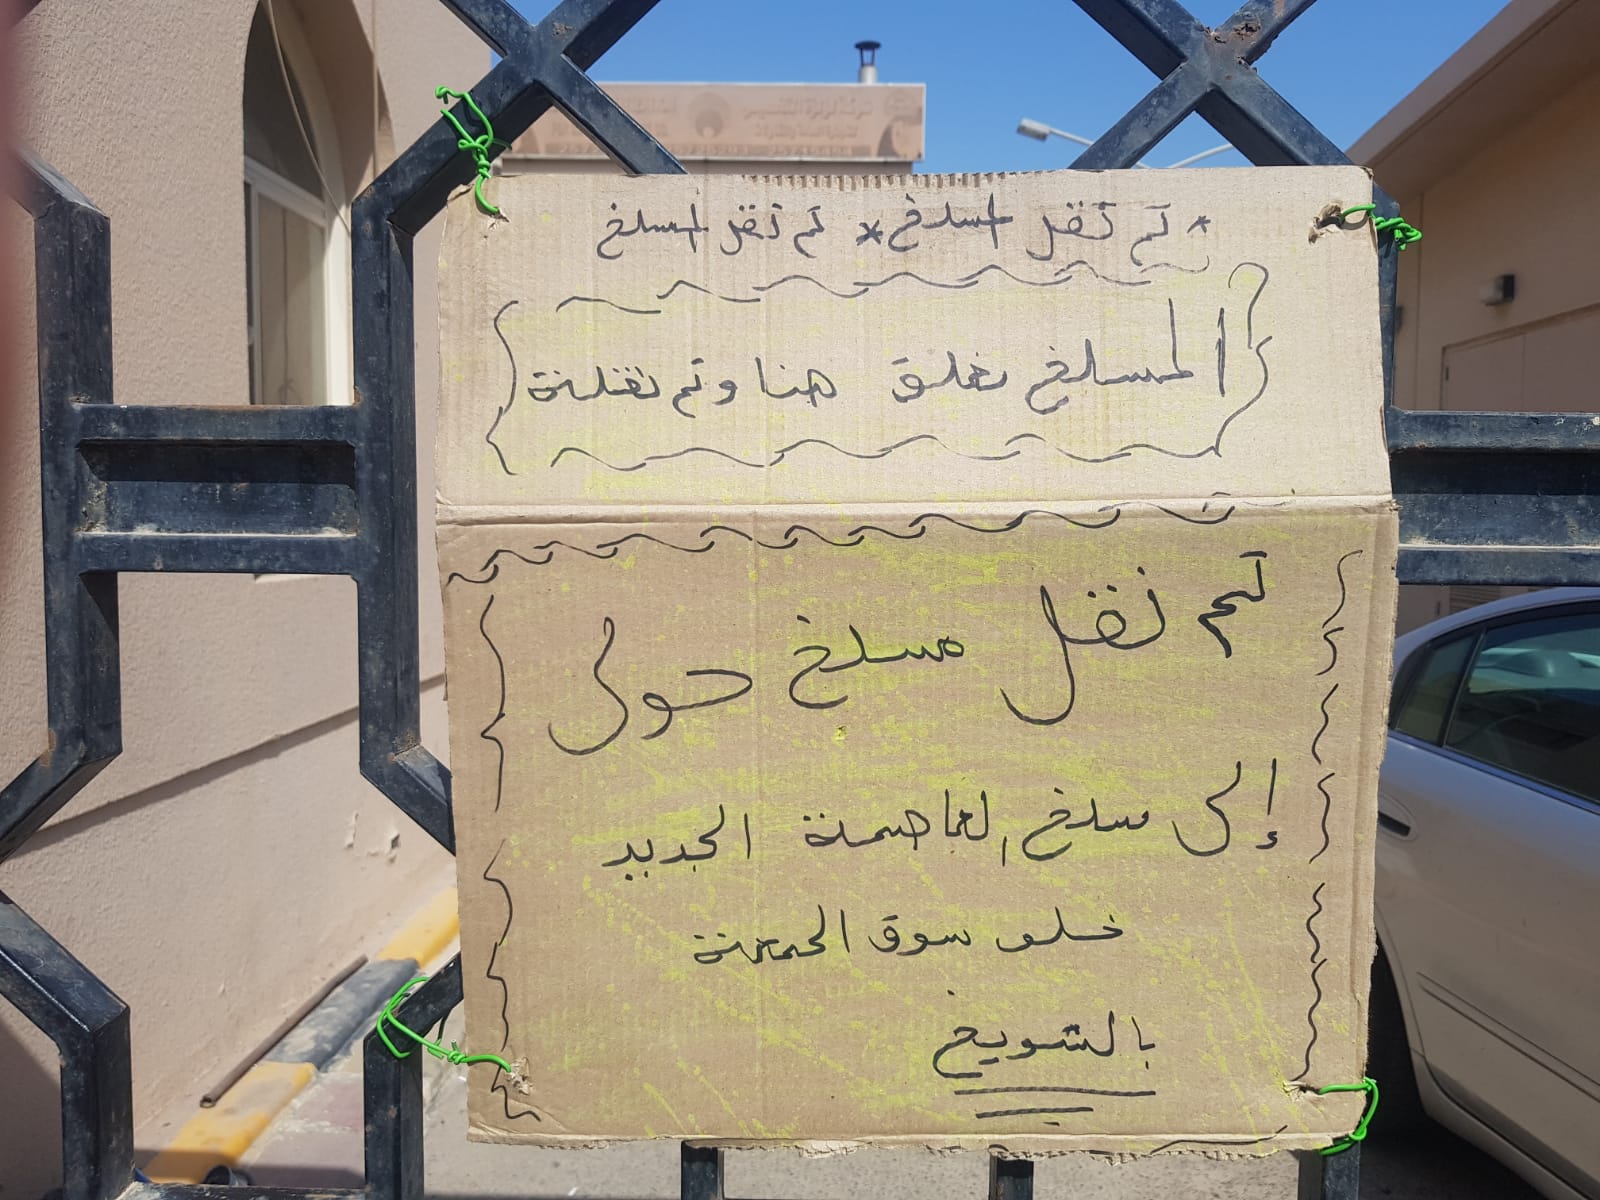 * تم نقل المسلخ * تم نقل المسلخ
المسلخ مغلق هنا وتم نقلة
تم نقل مسلخ حولي
إلى مسلخ العاصمة الجديد
خلف سوق الجمعة
بالشويخ